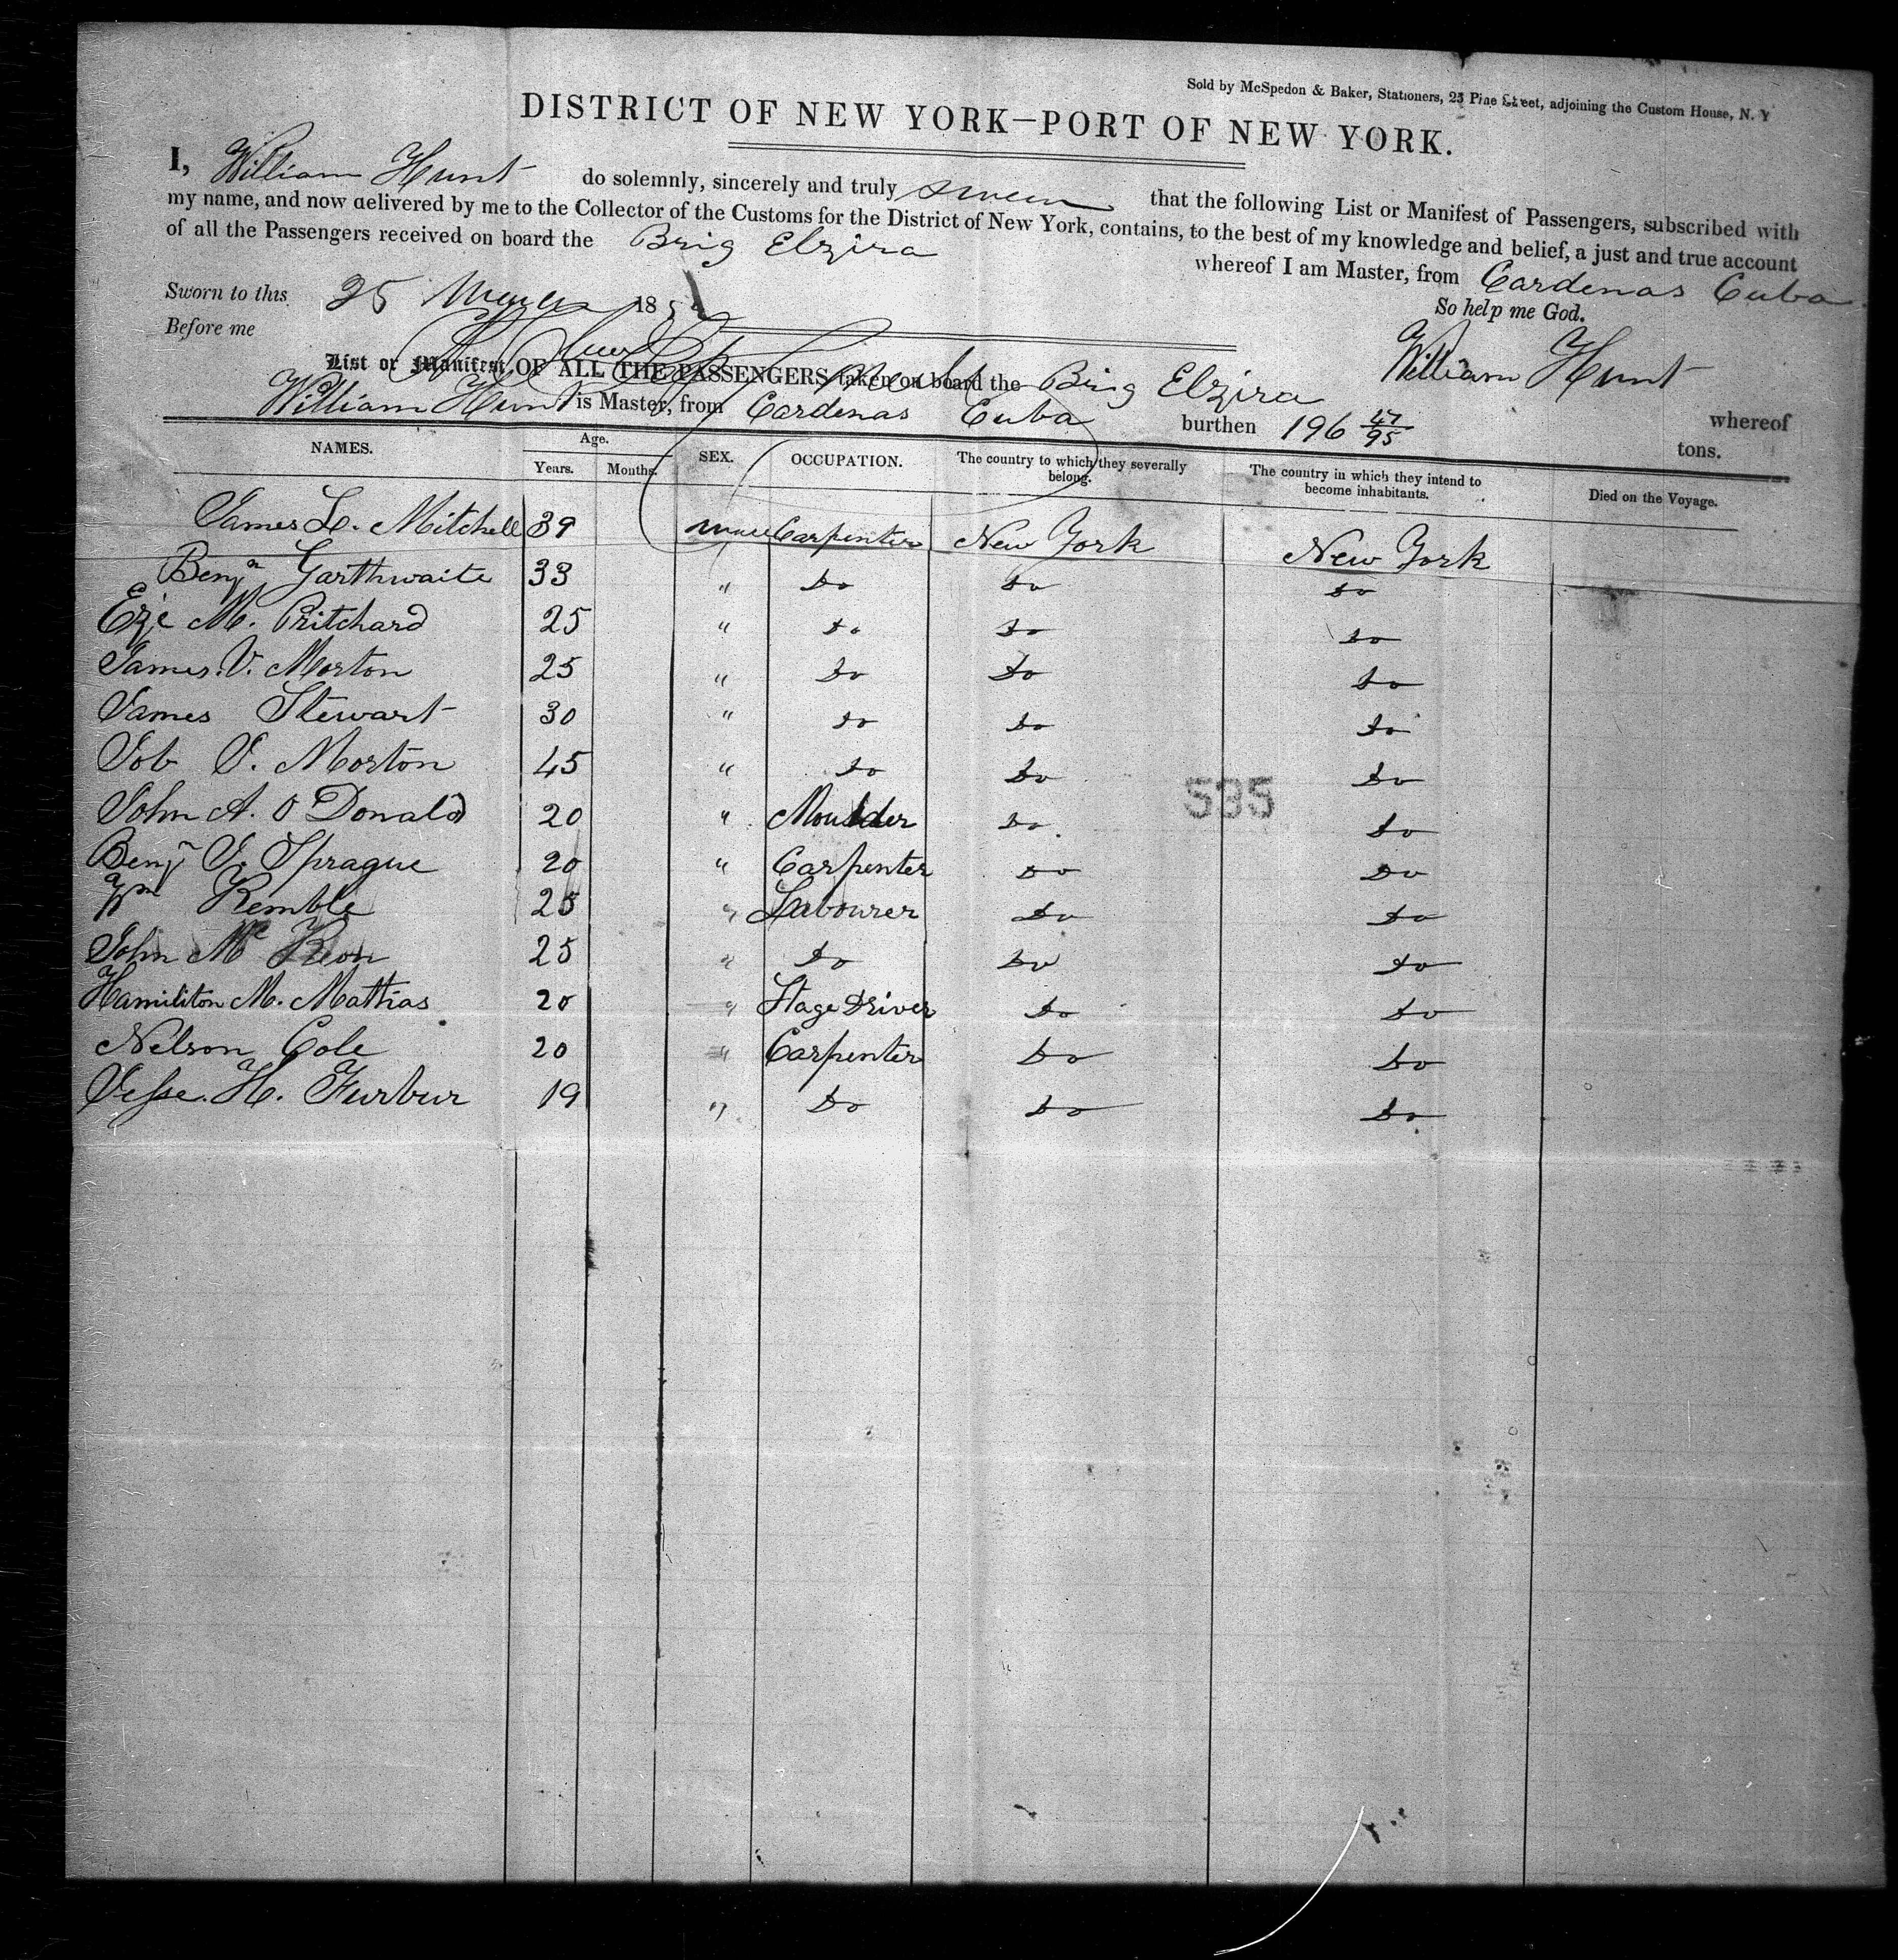 Sold by McSpedon & Baker, Stationers, 25 Pine Street, adjoining the Custom House, N. Y
DISTRICT OF NEW YORK—PORT OF NEW YORK.
I, William Hunt do solemnly, sincerely and truly swear that the following List or Manifest of Passengers, subscribed with
my name, and now delivered by me to the Collector of the Customs for the District of New York, contains, to the best of my knowledge and belief, a just and true account
of all the Passengers received on board the Brig Elzira whereof I am Master, from Cardenas Cuba
So help me God.
Sworn to this 25 185
Before me
William Hunt
List or Manifest OF ALL THE PASSENGERS taken on board the Brig Elzira whereof
William Hunt is Master, from Cardenas Cuba burthen 196 47/95 tons.
NAMES. Age. Years. Months. SEX. OCCUPATION. The country to which they severally belong. The country in which they intend to become inhabitants. Died on the Voyage.
James L. Mitchell 39 male Carpenter New York New York
Benjn Garthwaite 33 " do do do
Eze M. Pritchard 25 " do do do
James. V. Morton 25 " do do do
James Stewart 30 " do do do
Job J. Morton 45 " do do do
John A. O Donald 20 " Moulder do. do
Benjn J. Sprague 20 " Carpenter do do
Wm Kemble 25 " Labourer do do
John Mc Keon 25 " do do do
Hamiliton M. Mattias 20 " Stage Driver do do
Nelson Cole 20 " Carpenter do do
Jesse. H. Furbur 19 " do do do
535